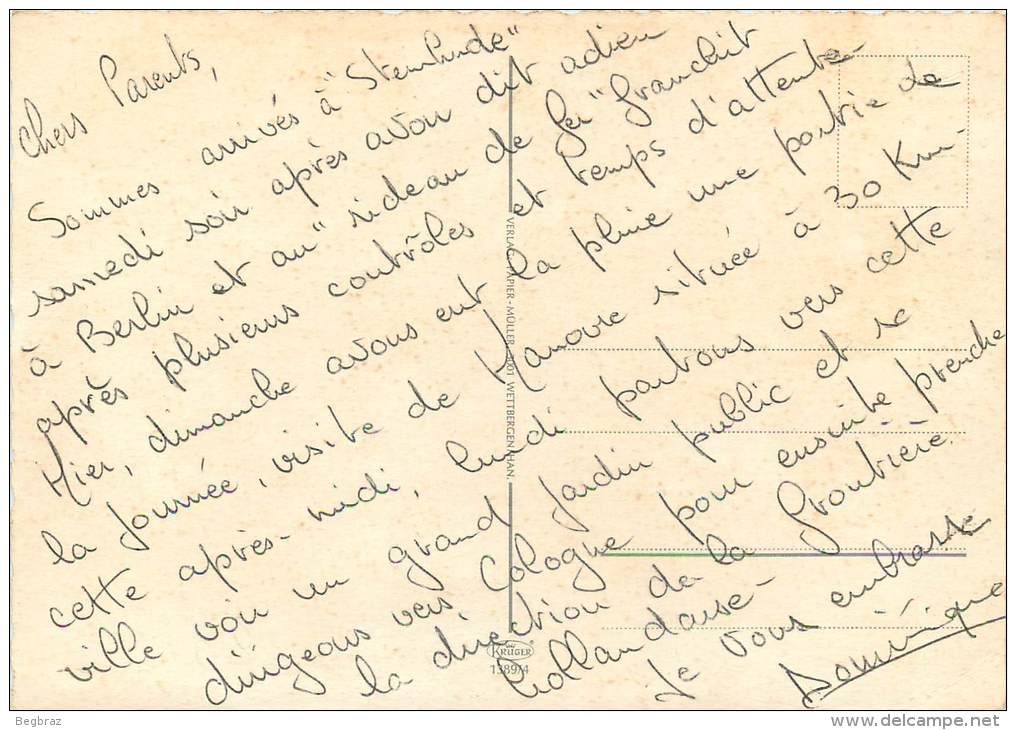 Chers Parents,
Sommes arrivés à "Steinhude"
samedi soir après avoir dit adieu
à Berlin et au "rideau de fer" franchit
après plusieurs contrôles et temps d'attente.
Hier, dimanche avons eut la pluie une partie de
la journée, visite de Hanovre située à 30 Km.
cette après-midi, lundi partons vers cette
ville voir un grand jardin public et se
dirigeons vers Cologne pour ensuite prendre
la direction de la frontière
hollandaise.
Je vous embrasse
Dominique
VERLAG: PAPIER-MÜLLER, 3001 WETTBERGEN/HAN.
KRÜGER
1389/4
Begbraz
www.delcampe.net